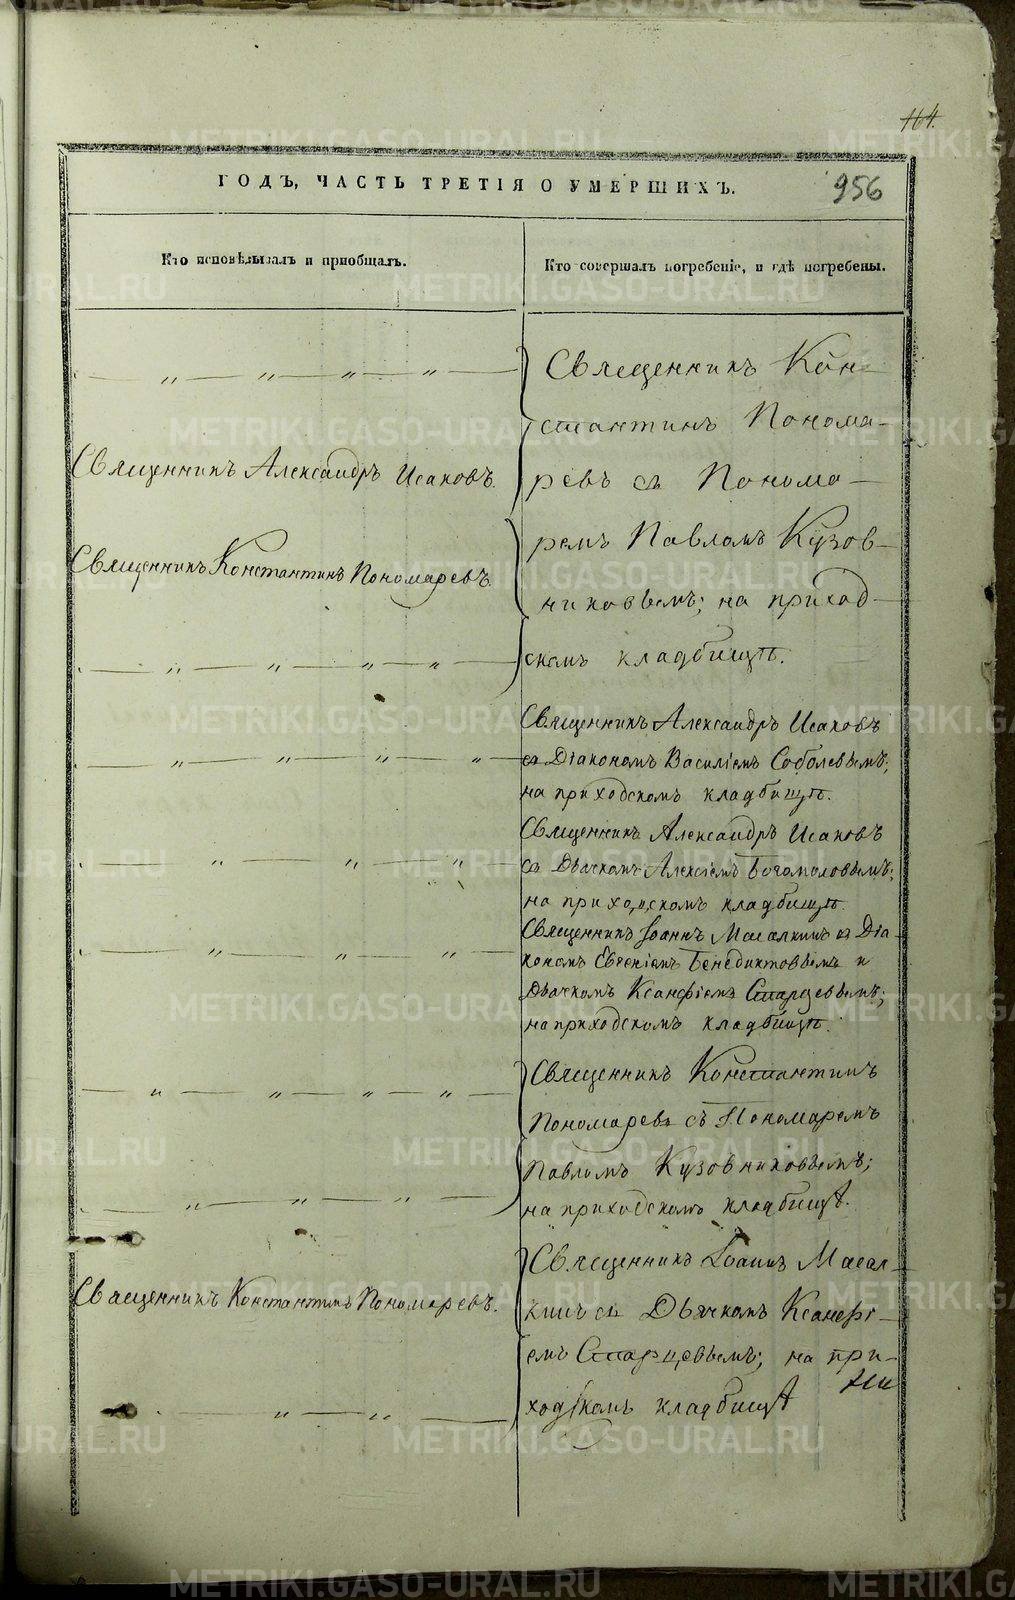 164.
ГОДЪ, ЧАСТЬ ТРЕТІЯ О УМЕРШИХЪ.
956
Кто исповѣдывалъ и пріобщалъ.
Кто совершалъ погребеніе, и гдѣ погребены.
— „ — „ — „ — „ —
Священникъ Александръ Исаковъ.
Священникъ Константинъ Пономаревъ.
— „ — „ — „ — „ —
— „ — „ — „ — „ —
— „ — „ — „ —
— „ — „ — „ —
— „ — „ — „ — „ —
— „ — „ — „ —
Священникъ Константинъ Пономаревъ.
— „ — „ —
Священникъ Кон-
стантинъ Понома-
ревъ съ Понома-
ремъ Павломъ Кузов-
никовымъ; на приход-
скомъ кладбищѣ.
Священникъ Александръ Исаковъ
съ Діакономъ Василіемъ Соболевымъ;
на приходскомъ кладбищѣ.
Священникъ Александръ Исаковъ
съ Дьячкомъ Алексіемъ Богомоловымъ;
на приходскомъ кладбищѣ.
Священникъ Іоаннъ Масалкинъ съ Діа-
кономъ Евгеніемъ Бенедиктовымъ и
Дьячкомъ Ксанфіемъ Старцевымъ;
на приходскомъ кладбищѣ.
Священникъ Константинъ
Пономаревъ съ Пономаремъ
Павломъ Кузовниковымъ;
на приходскомъ кладбищѣ.
Священникъ Іоаннъ Масал-
кинъ съ Дьячкомъ Ксанфі-
емъ Старцевымъ; на при-
ходскомъ кладбищѣ
METRIKI.GASO-URAL.RU